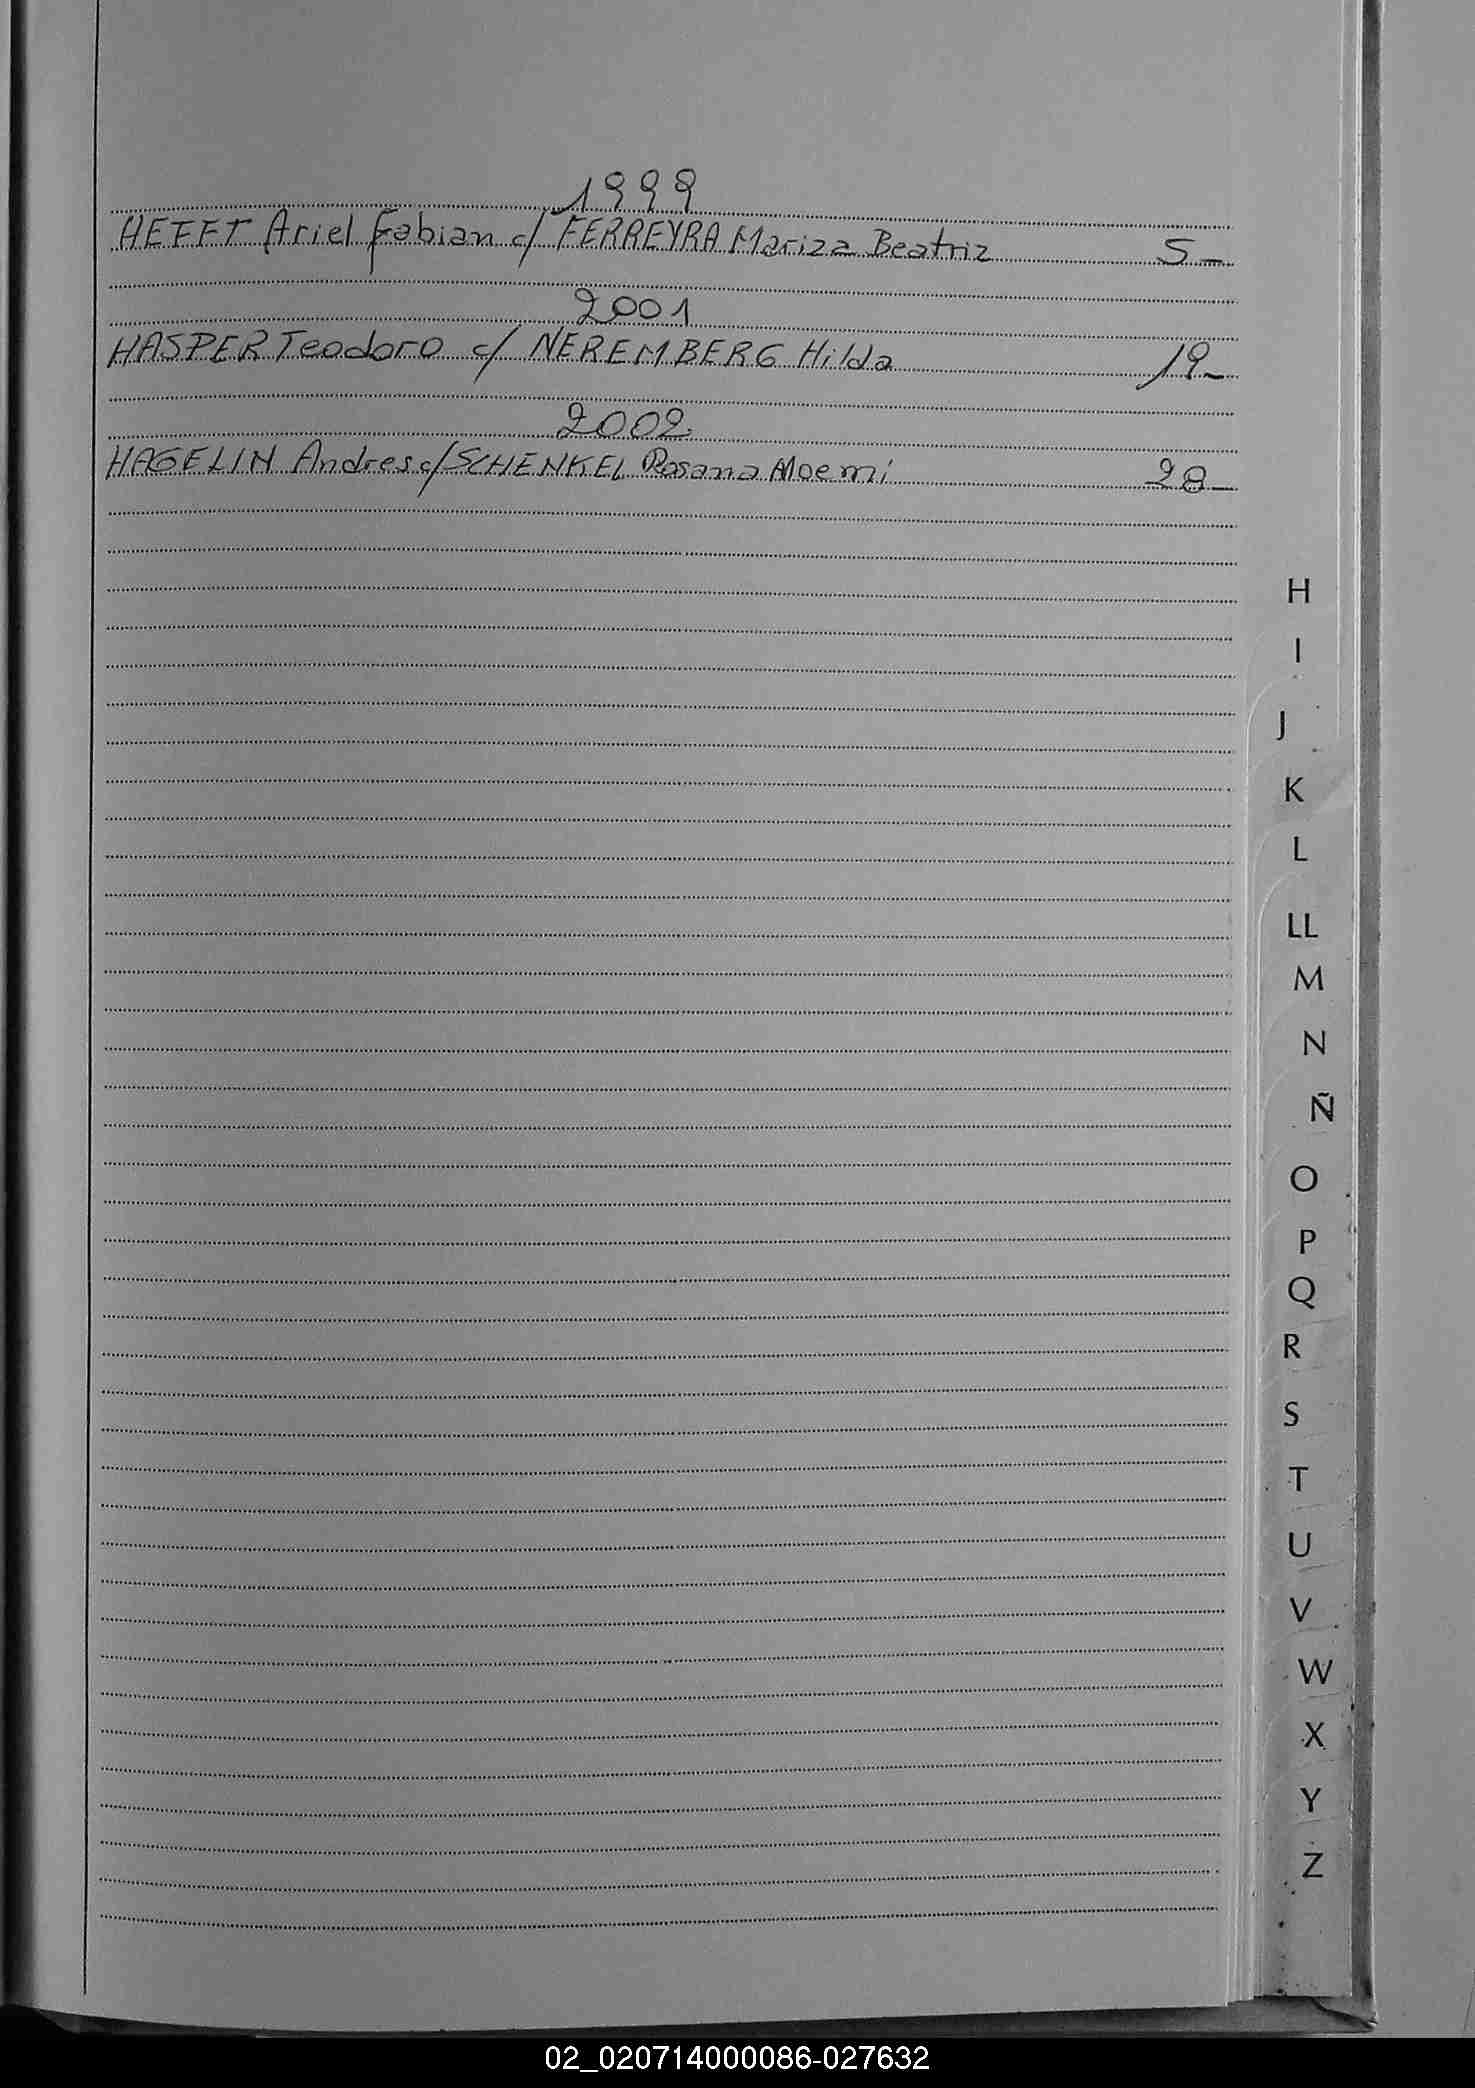 1999
HEFFT Ariel Fabian c/ FERREYRA Mariza Beatriz 5-
2001
HASPER Teodoro c/ NEREMBERG Hilda 19-
2002
HAGELIN Andres c/ SCHENKEL Rosana Noemi 28-
H
I
J
K
L
LL
M
N
Ñ
O
P
Q
R
S
T
U
V
W
X
Y
Z
02_020714000086-027632